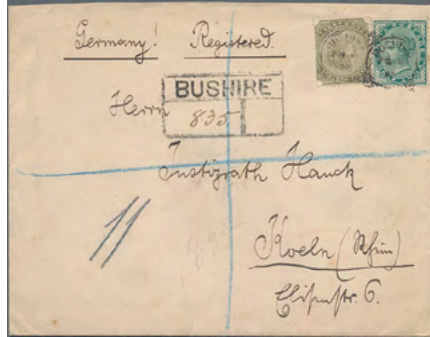 Germany! Registered.
BUSHIRE
835
Herrn
Justizrath Hanck
Koeln (Rhein)
Elisenstr. 6.